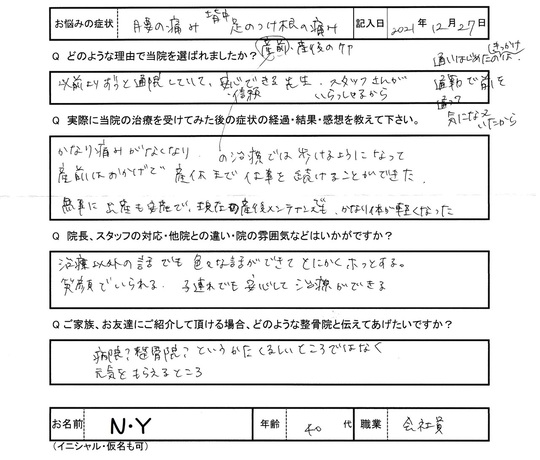 お悩みの症状
腰の痛み 背中 足のつけ根の痛み
記入日
2021年 12月 27日
産前・産後のケア
Q どのような理由で当院を選ばれましたか?
以前よりずっと通院していて、安心できる先生、スタッフさんが
・信頼
いらっしゃるから
きっかけ
通いはじめたのは、
通勤で前を
通って
気になって
いたから
Q 実際に当院の治療を受けてみた後の症状の経過・結果・感想を教えて下さい。
かなり痛みがなくなり、の治療では歩けるようになって
産前はおかげで産休まで仕事を続けることができた。
無事に出産も安産で、現在の産後メンテナンスでも、かなり体が軽くなった
Q 院長、スタッフの対応・他院との違い・院の雰囲気などはいかがですか?
治療以外の話でも色々な話ができてとにかくホッとする。
笑顔でいられる。子連れでも安心して治療ができる
Q ご家族、お友達にご紹介して頂ける場合、どのような整骨院と伝えてあげたいですか?
病院?整骨院?というかたくるしいところではなく
元気をもらえるところ
お名前
N・Y
年齢
40代
職業
会社員
(イニシャル・仮名も可)